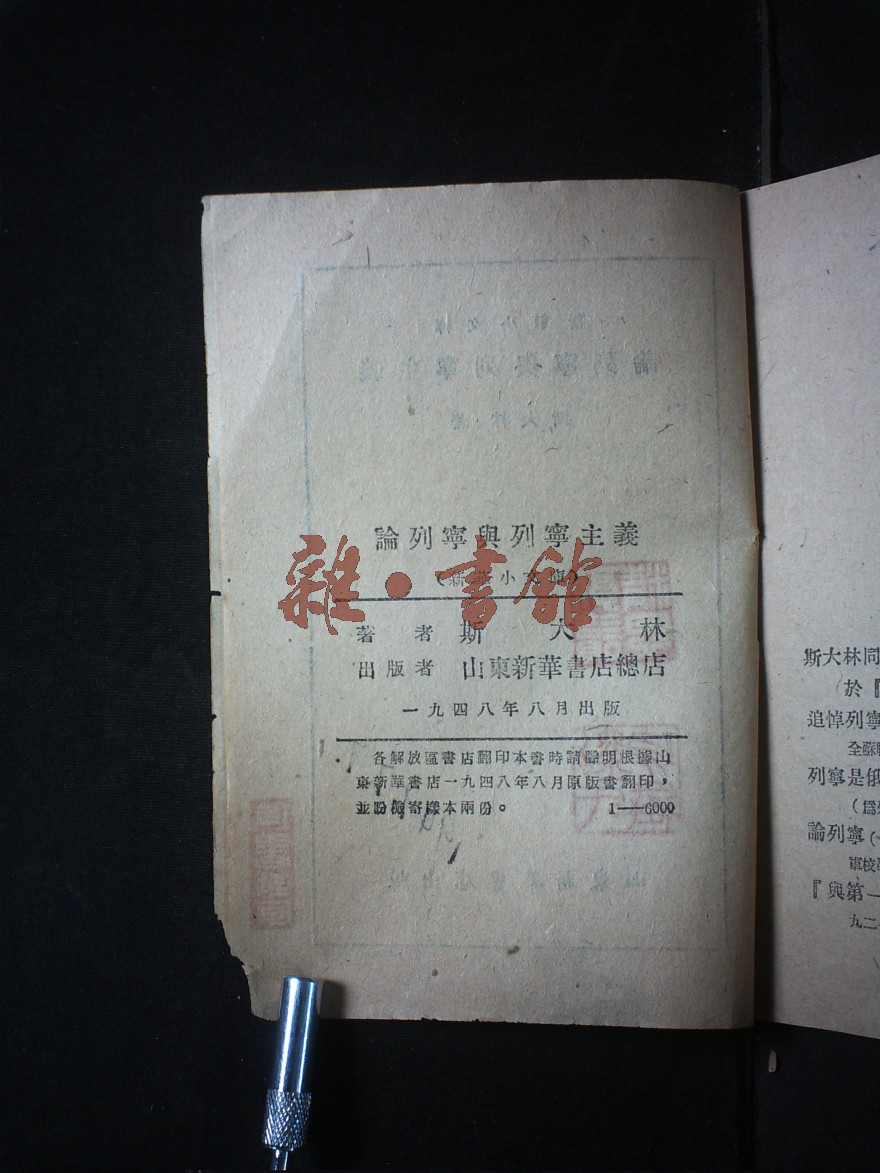 論列寧與列寧主義
(新華小文庫)
著者 斯大林
出版者 山東新華書店總店
一九四八年八月出版
各解放區書店翻印本書時請聲明根據山
東新華書店一九四八年八月原版書翻印，
並盼檢寄樣本兩份。 1—6000
雜·書館
斯大林同
於『
追悼列寧
全蘇聯
列寧是俄
(爲
論列寧(一
軍校
『與第一
九二